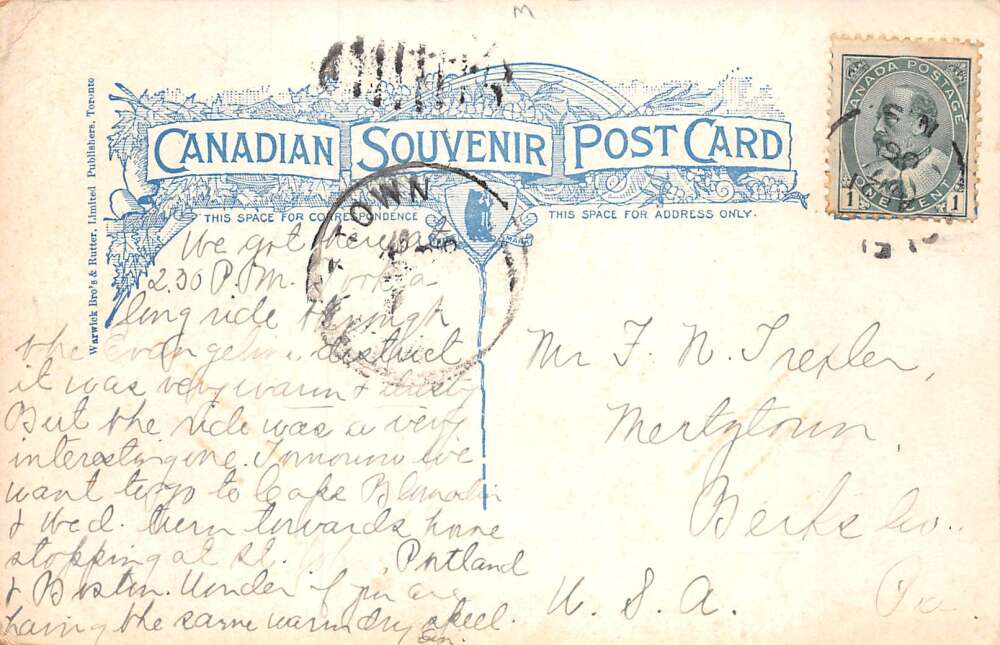 M
CANADIAN SOUVENIR POST CARD
THIS SPACE FOR CORRESPONDENCE
THIS SPACE FOR ADDRESS ONLY.
Warwick Bro's & Rutter, Limited Publishers, Toronto
CANADA POSTAGE
1 ONE CENT 1
TOWN
We got here at
2.30 P.M. Took a
long ride through
the Evangeline district
it was very warm & dusty
But the ride was a very
interesting one. Tomorrow we
want to go to Cape
& Wed. turn towards home
stopping at St. Portland
& Boston. Wonder if you are
having the same warm dry spell.
Mr F. N. Trexler,
Mertztown,
Berks Co.
U. S. A. Pa